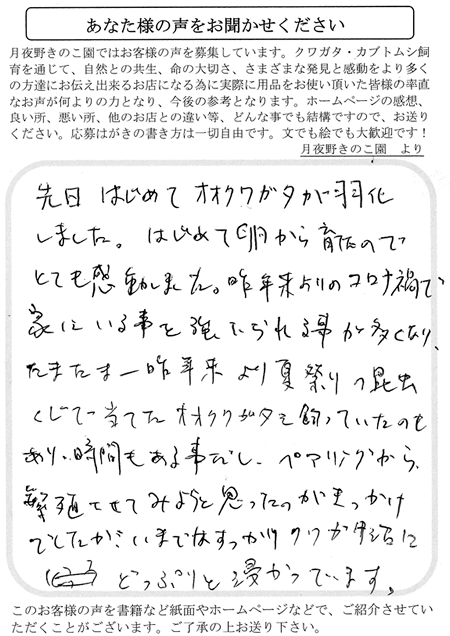 あなた様の声をお聞かせください
月夜野きのこ園ではお客様の声を募集しています。クワガタ・カブトムシ飼
育を通じて、自然との共生、命の大切さ、さまざまな発見と感動をより多く
の方達にお伝え出来るお店になる為に実際に用品をお使い頂いた皆様の率直
なお声が何よりの力となり、今後の参考となります。ホームページの感想、
良い所、悪い所、他のお店との違い等、どんな事でも結構ですので、お送り
ください。応募はがきの書き方は一切自由です。文でも絵でも大歓迎です！
月夜野きのこ園　より
先日 はじめて オオクワガタが羽化
しました。はじめて卵から育たので
とても感動しました。昨年来よりのコロナ禍で
家にいる事を強いられる事が多くなり、
たまたま一昨年来より夏祭りの昆虫
くじで当てたオオクワガタを飼っていたのも
あり、時間もある事だし、ペアリングから、
繁殖させてみようと思ったのがきっかけ
でしたが、いまではすっかりクワガタ沼に
どっぷりと浸かっています。
このお客様の声を書籍など紙面やホームページなどで、ご紹介させてい
ただくことがございます。ご了承の上お送り下さい。